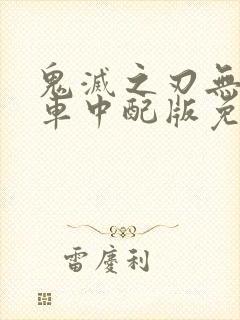 鬼滅之刃無
車中配版免
雷慶利